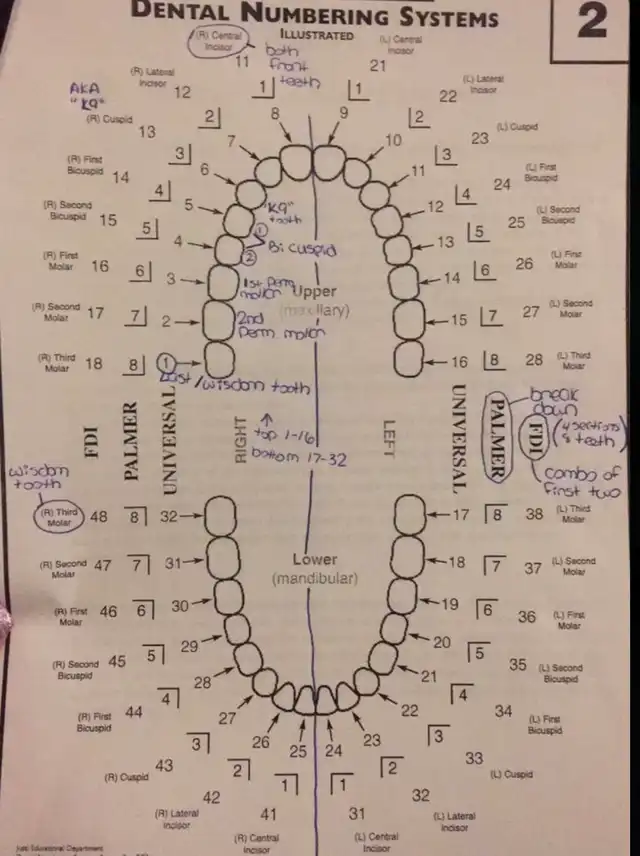 DENTAL NUMBERING SYSTEMS
ILLUSTRATED
2
(R) Central Incisor
11
both front teeth
(L) Central Incisor
21
(R) Lateral Incisor 12 1 1 22 (L) Lateral Incisor
AKA "K9"
(R) Cuspid 13 2 8 9 2 23 (L) Cuspid
(R) First Bicuspid 14 3 7 10 3 24 (L) First Bicuspid
6 11
(R) Second Bicuspid 15 4 5 "K9" tooth 12 4 25 (L) Second Bicuspid
5 4 1 2 Bicuspid 13 5
(R) First Molar 16 6 3 1st perm molion 14 6 26 (L) First Molar
Upper
(maxillary)
(R) Second Molar 17 7 2 2nd Perm. molion 15 7 27 (L) Second Molar
(R) Third Molar 18 8 1 16 8 28 (L) Third Molar
Last/wisdom tooth
FDI PALMER UNIVERSAL RIGHT LEFT UNIVERSAL PALMER FDI
break down
(4 sections 8 teeth)
combo of first two
top 1-16
bottom 17-32
wisdom tooth
(R) Third Molar 48 8 32 17 8 38 (L) Third Molar
(R) Second Molar 47 7 31 18 7 37 (L) Second Molar
Lower
(mandibular)
(R) First Molar 46 6 30 19 6 36 (L) First Molar
(R) Second Bicuspid 45 5 29 20 5 35 (L) Second Bicuspid
28 21
(R) First Bicuspid 44 4 27 22 4 34 (L) First Bicuspid
26 25 24 23
(R) Cuspid 43 3 3 33 (L) Cuspid
(R) Lateral Incisor 42 2 2 32 (L) Lateral Incisor
(R) Central Incisor 41 1 1 31 (L) Central Incisor
Educational Department